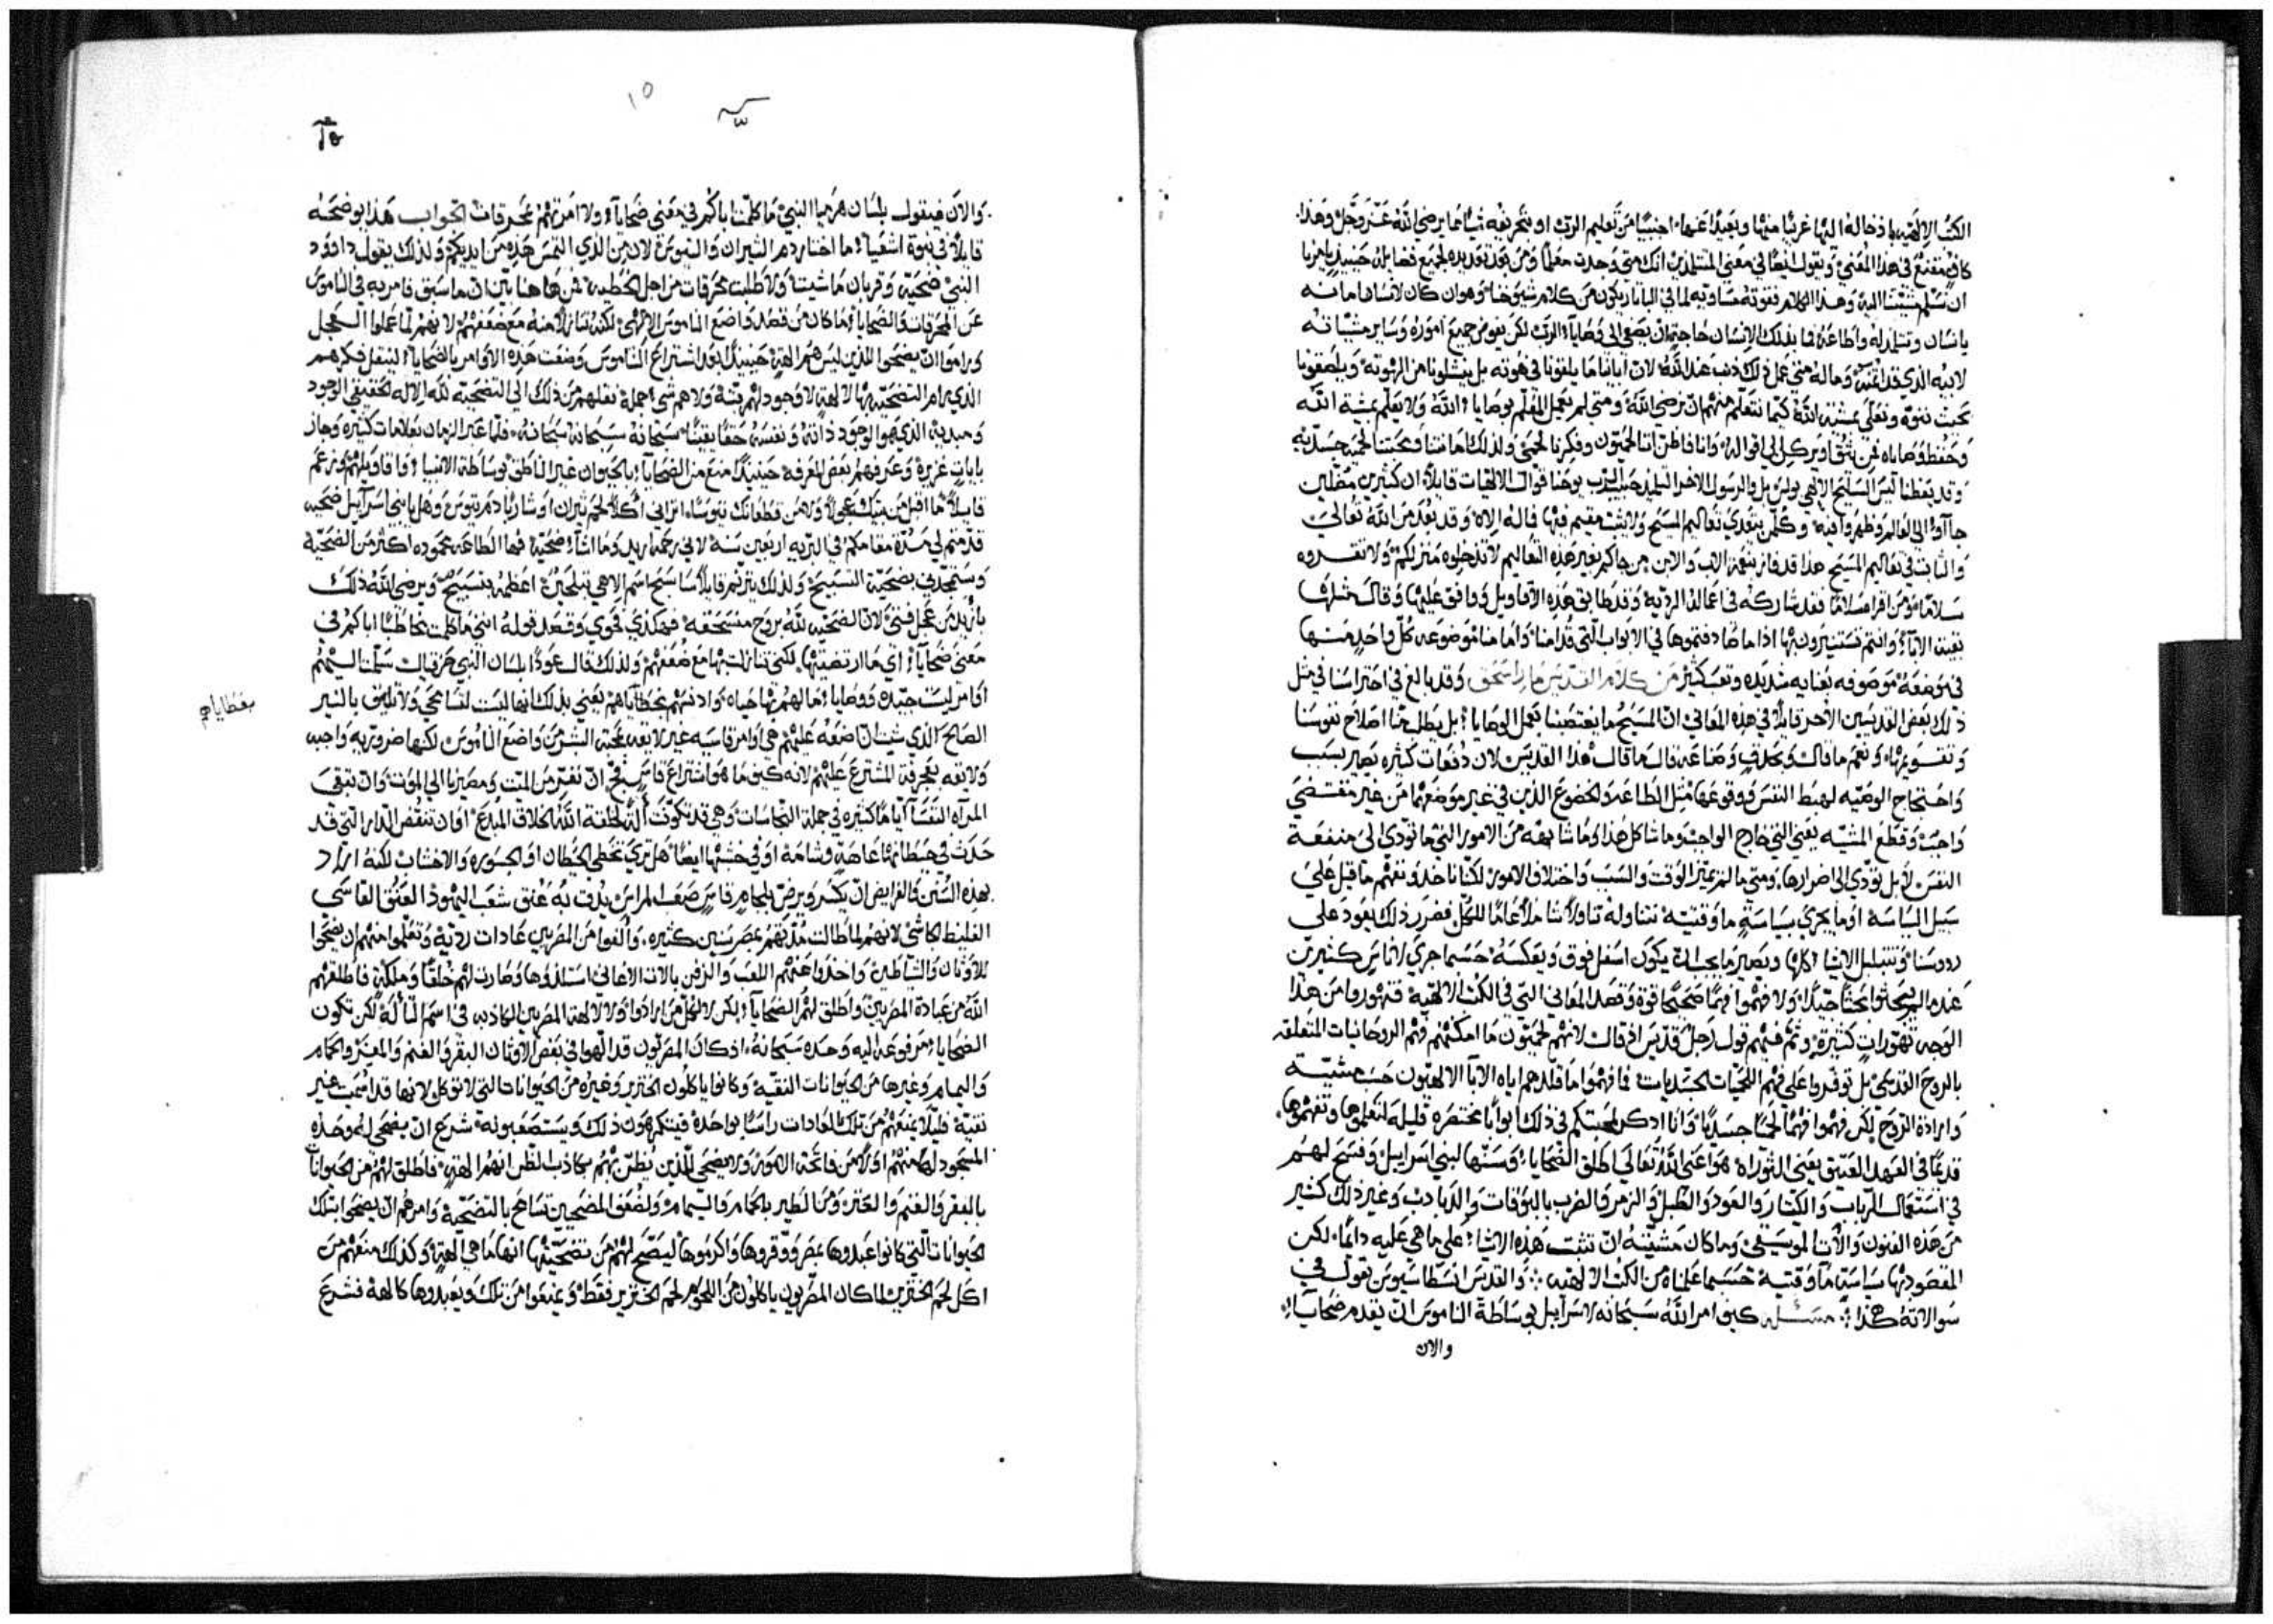 الكتب الالهيه باذخاله اليها غريبًا منها وبعيدًا عنها اجنبيًا من تعليم الرب او بتحريفه شيًا مما يرضي الله عز وجل وهذا
كافٍ مقنع في هذا المعني ويقول ايضًا في معني المتتلمذين انك متي وجدت معلمًا ومن بعد تجد يده لجميع فضايله حينيذٍ يامرنا
ان نسلم مشيتنا اليه وهذا الكلام قوته مساويه لما في الباباري يكون من كلام شيوخنا وهوان كان لانسان امانه
بانسان وتتلمذ له واطاعه فما بذلك الانسان حاجه ان يصغي الي وصايا الرب لكن يفوض جميع اموره وساير مشياته
لابيه الذي قد ائتمنه وماله متي عمل ذلك ذنب عند الله لان ابانا ما يلقونا في هوته بل ينشلونا من الهوته ويلصقونا
تحت بنوة ونعلي مشية الله كيما نتعلم منهم ان نرضي الله ومتي لم يعمل المعلم بوصايا الله ولا يعلم بمشية الله
وحفظ وصاياه فمن يثق او يركن الي اقواله وانا فاظن اننا لحميون وفكرنا لحمي ولذلك امانتنا ومحبتنا لحميه جسديه
وقد يعظنا ليس السليح الالهي بولس بل والرسول الاخر التلميذ حبيب الرب يوحنا قوال الالهيات قايلًا ان كثيرين مضلين
جاءوا الي العالم وظهروا فيه وكل من يتعدي تعاليم المسيح ولا يثبت مقيم فيها فما له الاه وقد بعد من الله تعالي
والثابت في تعاليم المسيح هذا قد فاز بنعمة الاب والابن من جاكم بغير هذه التعاليم لا تدخلوه منزلكم ولا تقروه
سلامًا ومن اقراه سلامًا فقد شاركه في اعماله الرديه وقد طابق هذه الاقاويل ووافق عليها وقال مثلها
بقية الاباء وانتم تستنيرون بها اذا ما صادفتموها في الابواب التي قدامنا واما هنا موضوعه كل واحد منها
في موضعه موصوفه بعنايه شديده وتعب كثير من كلام القديس مار اسحق وقد بالغ في احتراسنا في مثل
ذلك بعض القديسين الاخر قايلًا في هذه المعاني ان المسيح ما يغتصبنا بعمل الوصايا بل يطلب منا اصلاح نفوسنا
وتقويمها ونعم ما قال وبحذق وصناعه قال ما قال هذا القديس لان دفعات كثيره تصير بسبب
واحتجاج الوصيه لهبط النفس ووقوعها مثل الطاعه والخضوع الذين في غير موضعهما من غير مقتضي
واجب وقطع المشيه يعني التي خارج الواجب وما شاكل هذا وما شابهه من الامور التي ما تودي الي منفعة
النفس لا بل تودي الي اضرارها ومتي ما لم نميز الوقت والسبب واختلاف الامور لكننا ناخذ ونفهم ما قيل علي
سبيل السياسة او ما يجري بسياسةٍ ما وقتيه نتناوله تناولًا شاملًا عامًا للكل فضرر ذلك يعود علي
رووسنا وتتبلبل الاشيا كلها ويصير ما يجب ان يكون اسفل فوق وبعكسه حسبما جري لاناس كثيرين
عندما لم يبحثوا بحثًا جيدًا ولا فهموا فهمًا صحيحًا قوة وقصد المعاني التي في الكتب الالهيه فتهوروا من هذا
الوجه تهورات كثيره وتم فيهم قول رجل قديس اذ قال لانهم لحميون ما امكنهم فهم الروحانيات المتعلقه
بالروح القدس بل توفروا علي فهم اللحميات الجسديات فما فهموا ما قلدهم اياه الابا الالهيون حسب مشيته
وارادة الروح لكن فهموا فهمًا لحميًا جسديًا وانا اذكر لمحبتكم في ذلك ابوابًا مختصره قليله لتعلموها وتفهموها
قديمًا في العهد العتيق يعني التوراه هو اعني الله تعالي اطلق الضحايا وسنها لبني اسراييل وفسح لهم
في استعمال الرباب والكنار والعود والطبل والزمر والضرب بالبوقات والدبادب وغير ذلك كثير
من هذه الفنون والات الموسيقي وما كان مشيته ان تثبت هذه الاشيا علي ما هي عليه دايمًا لكن
المقصود بها سياسة ما وقتيه حسبما علمناه من الكتب الالهيه والقديس انسطاسيوس يقول في
سوالاته هكذا مسئله كيف امر الله سبحانه لاسراييل بوساطة الناموس ان يقدم ضحايا
والان
١٥
والان فيقول بلسان هرميا النبي ما كلمت اباكم في معني ضحايا ولا امرتهم بمحرقات الجواب هذا يوضحه
قايلًا في نبوة اشعيا ما اختار دم الثيران والتيوس لان من الذي التمس هذه من ايديكم ولذلك يقول داوود
النبي ضحيةً وقربان ما شيت ولا طلبت محرقات من اجل الخطيه فمن هاهنا تبين ان ما سبق فامر به في الناموس
عن المحرقات والضحايا ما كان من قصد واضع الناموس الالهي لكنه تنازلًا منه مع ضعفهم لانهم لما عملوا العجل
وراموا ان يضحوا للذين ليس هم الهة حينيذٍ بعد اشتراع الناموس وضعت هذه الاوامر بالضحايا لينقل فكرهم
الذي رام التضحية لالهةٍ لا وجود لهم بتة ولا هم شي جملة نقلهم من ذلك الي التضحيه لله الاله الحقيقي الوجود
ومبديه الذي هو الوجود ذاته ونفسه حقًا يقينًا سبحانه سبحانه سبحانه فلما عبر الزمان بعلامات كثيره وجاز
بايات غزيرة وعرفهم بعض المعرفه حينيذٍ منع من الضحايا بالحيوان غير الناطق بوساطة الانبيا
قايلًا ما اقبل من بيتك عجولًا ولا من قطعانك تيوسًا اتراني اكلًا لحم ثيران او شاربًا دم تيوس وهل يا بني اسراييل ضحيه
قدمتم لي مدة مقامكم في البريه اربعين سنه لاني رحمه اريد وما اشاء ضحيه فيما الطاعه محموده اكثر من الضحيه
وستمجدني بضحية التسبيح ولذلك يترنم قايلًا سا سبح اسم الاهي بتلحين اعظمه بتسبيح ويرضي الله ذلك
بازيد من عجل فتي لان الضحيه لله بروح منسحقه فهكذي فحوي وقصد قوله انني ما كلمت مخاطبًا اباكم في
معني ضحايا اي ما ارتضيتها لكني تنازلت بها مع ضعفهم ولذلك قال عودًا بلسان النبي حزقيال سلمت اليهم
اوامر ليست جيده ووصايا ما لهم بها حياه وادنسهم بخطاياهم يعني بذلك انها ليست لقسامجي ولا تليق بالنير
بعطاياهم
الصالح الذي شيت ان اضعه عليهم هي اوامر قاسيه غير لايقه بمحبة البشر من واضع الناموس لكنها ضروريه واجبه
ولايقه بعجرفة المشترع عليهم لانه كيف ما هو اشتراع قاسٍ فج ان نفتز من الميت ومصيرنا الي الموت وان تبقي
المرآه النفسا ايامًا كثيره في جملة النجاسات وهي قد تكونت آلةً لخلقة الله الخلاق المبدع او ان تنقض الدار التي قد
حدث في حيطانها عاهة وشامة او في خشبها ايضًا هل تري تخطي الحيطان او الجسوره والاخشاب لكنه اراد
بهذه السنن والفرايض ان يكسر ويرضّ بلجام قاسٍ صعب المراس يذل به عنق شعب اليهود العنق القاسي
الغليظ الجاشي لانهم لما طالت مدتهم بمصر سنين كثيره والفوا من المصريين عادات رديه وتعلموا منهم ان يضحوا
للاوثان والشياطين واخذوا عنهم اللعب والزفن بالات الاغاني استلذوها وصارت لهم خلقًا وملكةً فاطلقهم
الله من عبادة المصريين واطلق لهم الضحايا لكن لا لكل من ارادوا ولا لالهة المصريين الكاذبه في اسم التأله لكن تكون
الضحايا مرفوعة اليه وحده سبحانه اذ كان المصريون قد الهوا في بعض الاوثان البقر والغنم والمعز والحمام
واليمام وغيرها من الحيوانات النقيه وكانوا ياكلون الخنزير وغيره من الحيوانات التي لا توكل لانها قد سميت غير
نقيه فليلا يمنعهم من تلك العادات راسًا بواحده فيتكرهون ذلك ويستصعبونه شرع ان يضحي له وحده
المسجود له منهم اولًا من فاتحة الامور ولا يضحي للذين يظن بهم بكاذب الظن انهم الهةٍ فاطلق لهم من الحيوانات
بالبقر والغنم والعنز ومن الطير بالحمام واليمام ولضعف المضحيين تسامح بالتضحية وامرهم ان يضحوا بتلك
الحيوانات التي كانوا عبدوها بمصر ووقروها واكرموها ليتضح لهم من تضحيتها انها ما هي آلهةٍ وكذلك منعهم من
اكل لحم الخنزير لما كان المصريون ياكلون من اللحوم لحم الخنزير فقط ويمنعوا من تلك ويعبدوها كالهة فشرع